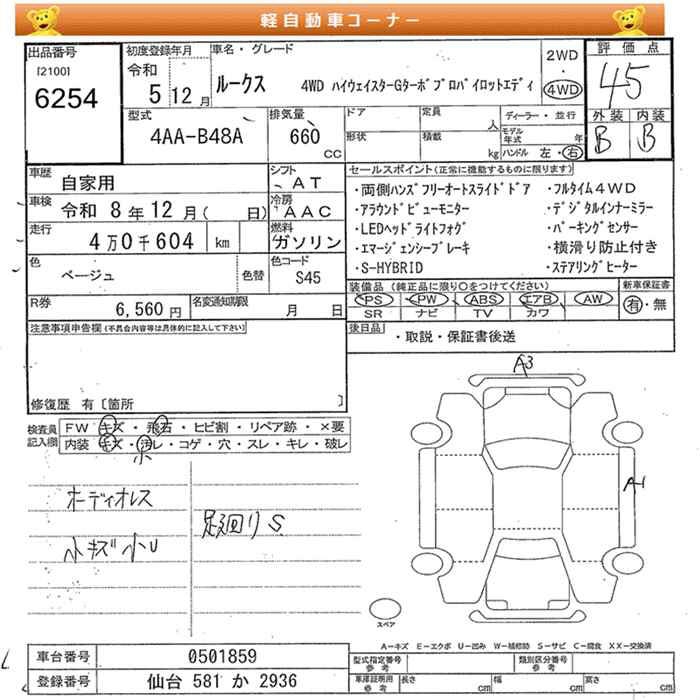 軽自動車コーナー
出品番号
[2100]
6254
初度登録年月
令和
5 12月
車名・グレード
ルークス 4WD ハイウェイスターGターボプロパイロットエディ
2WD
・
4WD
評価点
4.5
外装 内装
B B
型式
4AA-B48A
排気量
660
cc
ドア
形状
定員
人
積載
kg
ディーラー・並行
モデル年式 年
ハンドル 左・右
車歴
自家用
シフト
AT
車検
令和 8年12月( 日)
冷房
AAC
走行
4万0千604 km
燃料
ガソリン
色
ベージュ
色替
色コード
S45
R券
6,560円
名変通知期限
月 日
セールスポイント(正常に機能するものに限ります)
・両側ハンズフリーオートスライドドア ・フルタイム4WD
・アラウンドビューモニター ・デジタルインナーミラー
・LEDヘッドライトフォグ ・パーキングセンサー
・エマージェンシーブレーキ ・横滑り防止付き
・S-HYBRID ・ステアリングヒーター
装備品(純正品に限り○をつけてください)
PS PW ABS エアB AW
SR ナビ TV カワ
新車保証書
有・無
後日品
・取説・保証書後送
注意事項申告欄(不具合内容等は具体的に記入して下さい)
修復歴 有[箇所 ]
検査員記入欄
FW キズ・飛石・ヒビ割・リペア跡・×要
内装 キズ・汚レ・コゲ・穴・スレ・キレ・破レ
小
オーディオレス
小キズ小U
足廻りS
A3
A1
スペア
A-キズ E-エクボ U-凹み W-補修跡 S-サビ C-腐食 XX-交換済
車台番号
0501859
登録番号
仙台 581 か 2936
型式指定番号
参考
類別区分番号
参考
車庫証明用
参考
長さ cm
幅 cm
高さ cm